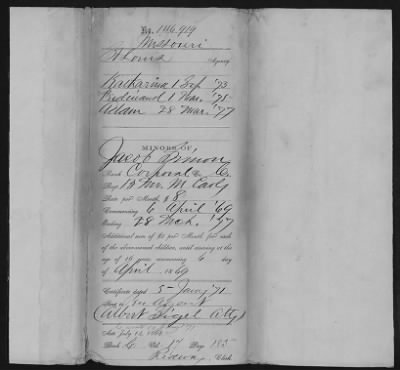 No. 146,919
Missouri
St Louis Agency
Katharina 1 Sep '73
Ferdinand 1 Mar. '75
Adam 28 Mar. '77
MINORS OF
Jacob Simon
Rank Corporal Co. C.
Regt 12 Mo. M Cavly
Rate per Month, $8
Commencing 6 April '69
Ending 28 Mch. '77
Additional sum of $2 per Month for each
of the above-named children, until arriving at the
age of 16 years, commencing 6 day
of April 1869
Certificate dated 5 Jany '71
Sent to Agent
(Albert Sigel Atty)
Act July 14 1862
Book C Vol. 17 Page 185
Clerk